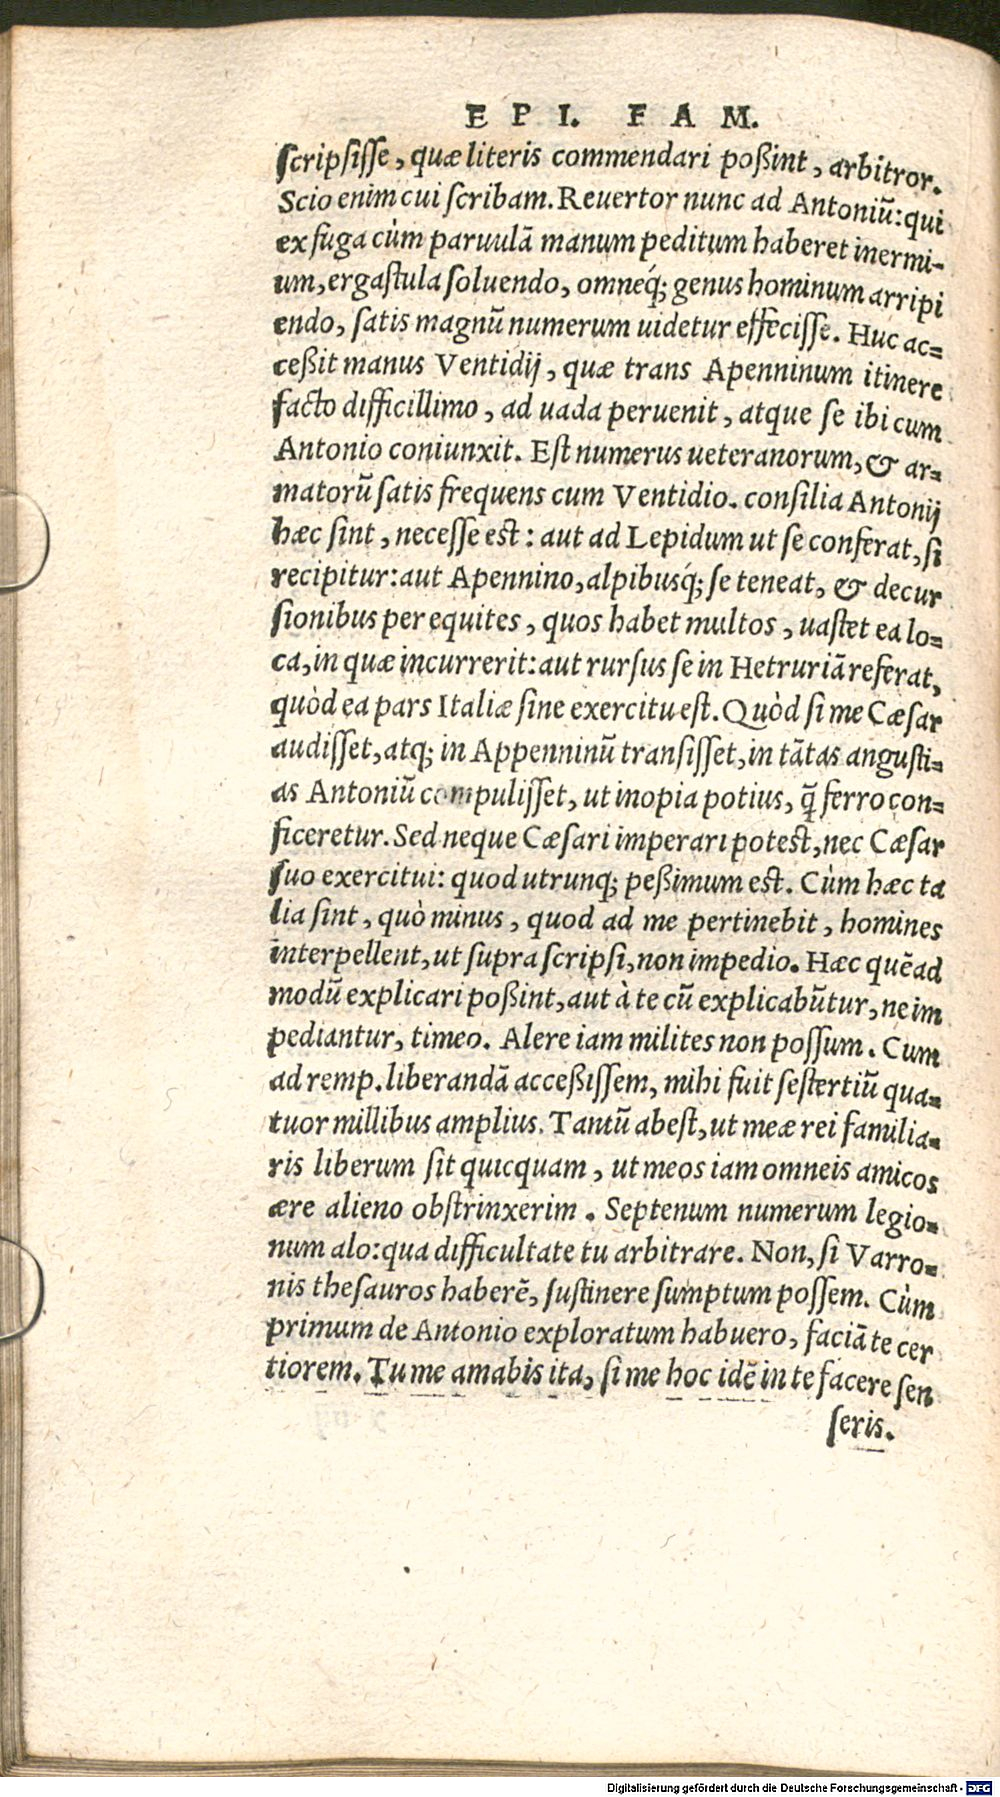 EPI. FAM.
scripsisse, quæ literis commendari poßint, arbitror.
Scio enim cui scribam. Reuertor nunc ad Antoniū: qui
ex fuga cùm paruulā manum peditum haberet inermi-
um, ergastula soluendo, omneq́; genus hominum arripi
endo, satis magnū numerum uidetur effecisse. Huc ac=
ceßit manus Ventidij, quæ trans Apenninum itinere
facto difficillimo, ad uada peruenit, atque se ibi cum
Antonio coniunxit. Est numerus ueteranorum, & ar=
matorū satis frequens cum Ventidio. consilia Antonij
hæc sint, necesse est: aut ad Lepidum ut se conferat, si
recipitur: aut Apennino, alpibusq́; se teneat, & decur
sionibus per equites, quos habet multos, uastet ea lo=
ca, in quæ incurrerit: aut rursus se in Hetruriā referat,
quòd ea pars Italiæ sine exercitu est. Quòd si me Cæsar
audisset, atq; in Appenninū transisset, in tātas angusti=
as Antoniū compulisset, ut inopia potius, q̄ ferro con=
ficeretur. Sed neque Cæsari imperari potest, nec Cæsar
suo exercitui: quod utrunq; peßimum est. Cùm hæc ta
lia sint, quò minus, quod ad me pertinebit, homines
interpellent, ut supra scripsi, non impedio. Hæc quēad
modū explicari poßint, aut à te cū explicabūtur, ne im
pediantur, timeo. Alere iam milites non possum. Cum
ad remp. liberandā acceßissem, mihi fuit sestertiū qua=
tuor millibus amplius. Tantū abest, ut meæ rei familia=
ris liberum sit quicquam, ut meos iam omneis amicos
ære alieno obstrinxerim. Septenum numerum legio=
num alo: qua difficultate tu arbitrare. Non, si Varro=
nis thesauros haberē, sustinere sumptum possem. Cùm
primum de Antonio exploratum habuero, faciā te cer
tiorem. Tu me amabis ita, si me hoc idē in te facere sen
seris.
Digitalisierung gefördert durch die Deutsche Forschungsgemeinschaft - DFG